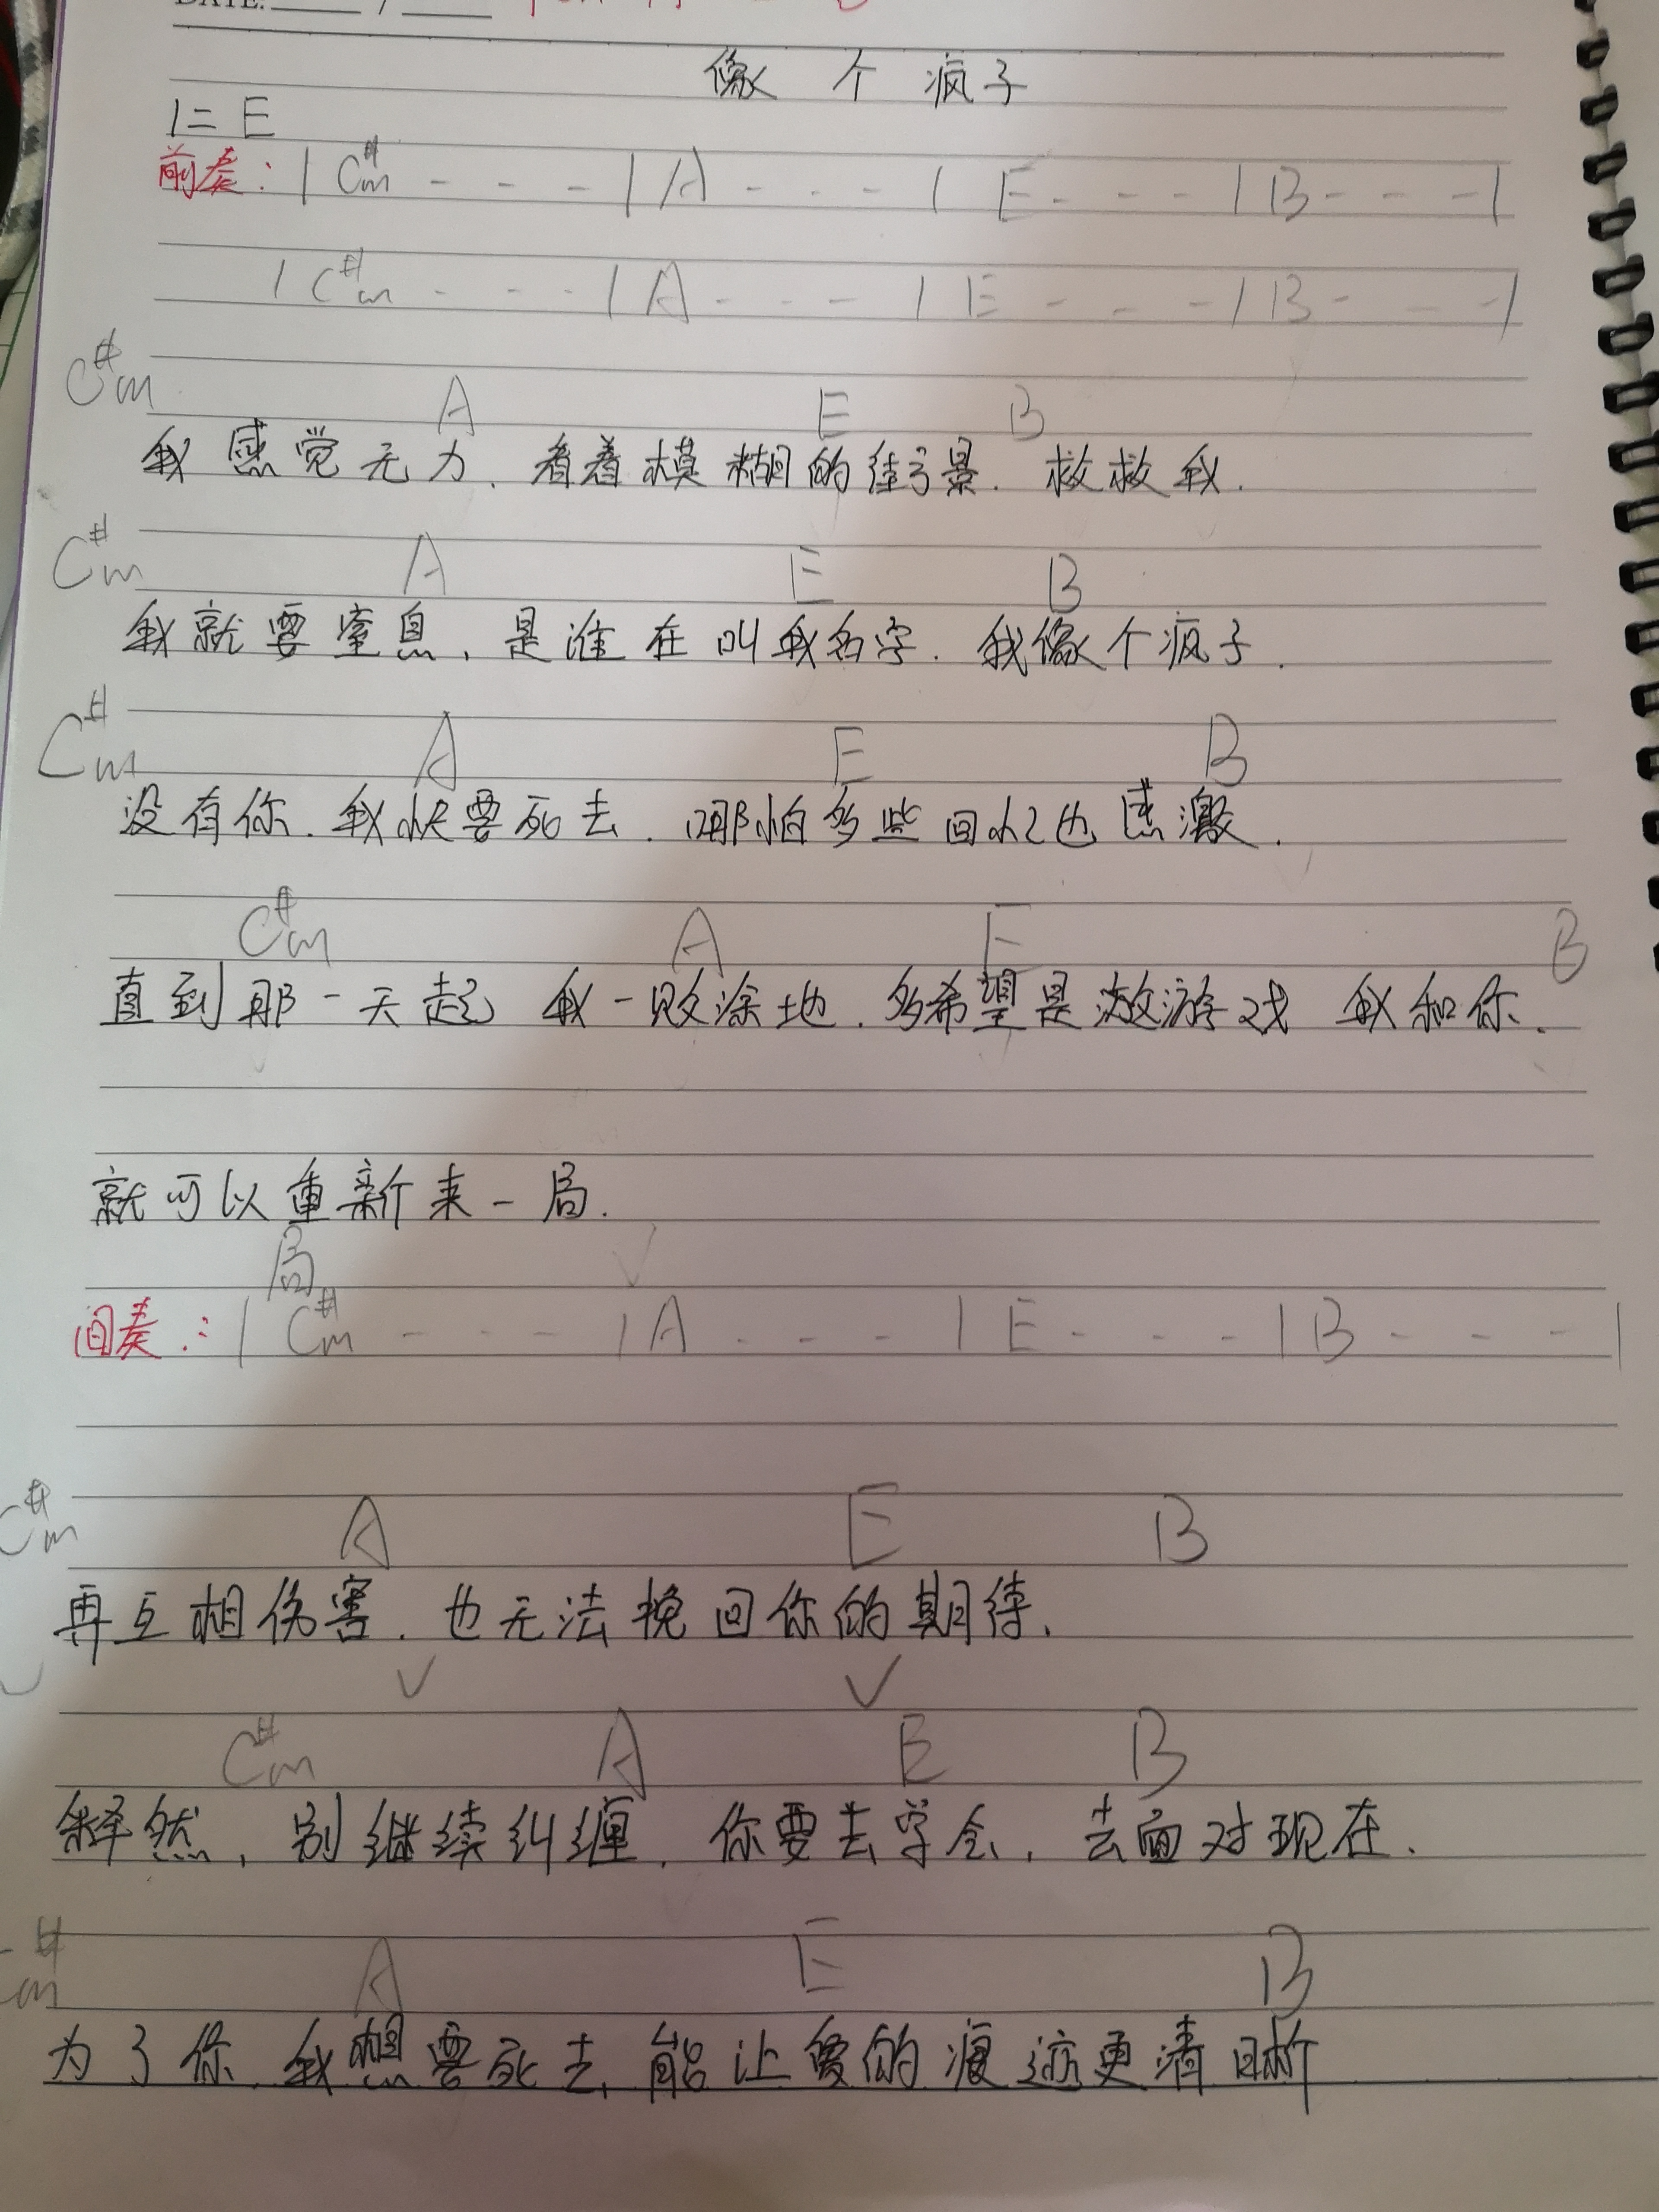 DATE: ____ / ____
像 个 疯子
1=E
前奏: | C#m - - - | A - - - | E - - - | B - - - |
| C#m - - - | A - - - | E - - - | B - - - |
C#m A E B
我感觉无力.看着模糊的街景.救救我.
C#m A E B
我就要窒息.是谁在叫我名字.我像个疯子.
C#m A E B
没有你.我快要死去.哪怕多些回忆也感激.
C#m A E B
直到那一天起 我一败涂地.多希望是激游戏 我和你.
就可以重新来一局.
局 ✓
间奏: | C#m - - - | A - - - | E - - - | B - - - |
C#m A E B
再互相伤害.也无法挽回你的期待.
✓ ✓
C#m A E B
释然,别继续纠缠.你要去学会,去面对现在.
#m A E B
为了你.我想要死去,能让爱的痕迹更清晰